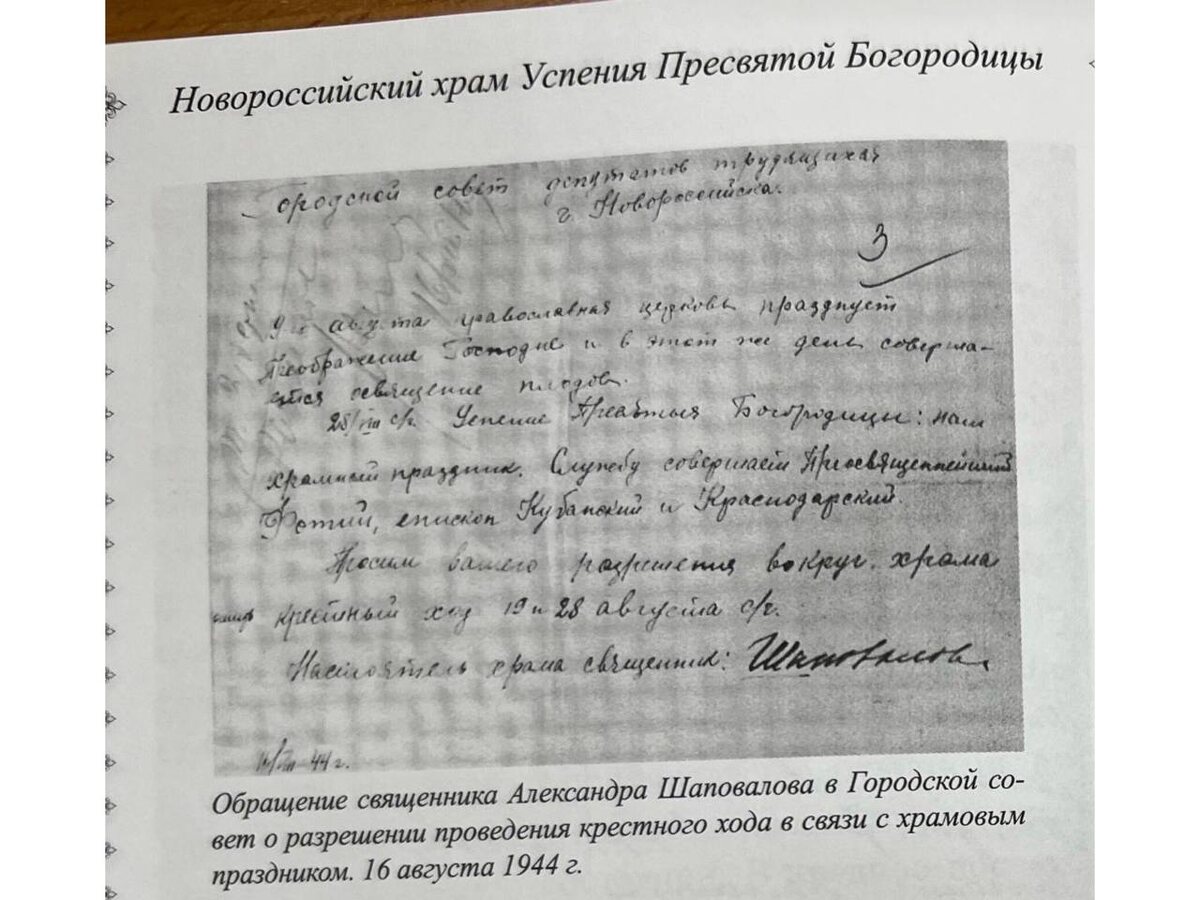 Новороссийский храм Успения Пресвятой Богородицы
Городской совет депутатов трудящихся
г. Новороссийска.
3
августа православная церковь празднует
Преображение Господне и в этот же день соверша-
ется освящение плодов.
28/VIII с/г. Успение Пресвятыя Богородицы: наш
храмный праздник. Службу совершает Преосвященнейший
Фотий, епископ Кубанский и Краснодарский.
Просим вашего разрешения вокруг храма
крестный ход 19 и 28 августа с/г.
Настоятель храма священник: Шаповалов
/VIII 44 г.
Обращение священника Александра Шаповалова в Городской со-
вет о разрешении проведения крестного хода в связи с храмовым
праздником. 16 августа 1944 г.